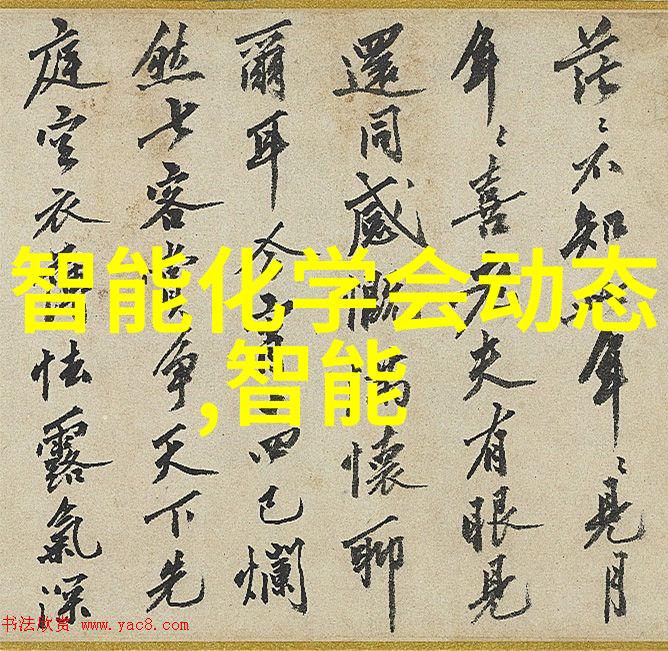 茫〻不知年〻見月
年〻喜夫有眼見
還同感慨懷聊
爾耳今四已爛
然七客當争天下先
庭空衣怯露氣深
智能化学会动态
,智能
书法欣赏 www.yac8.com